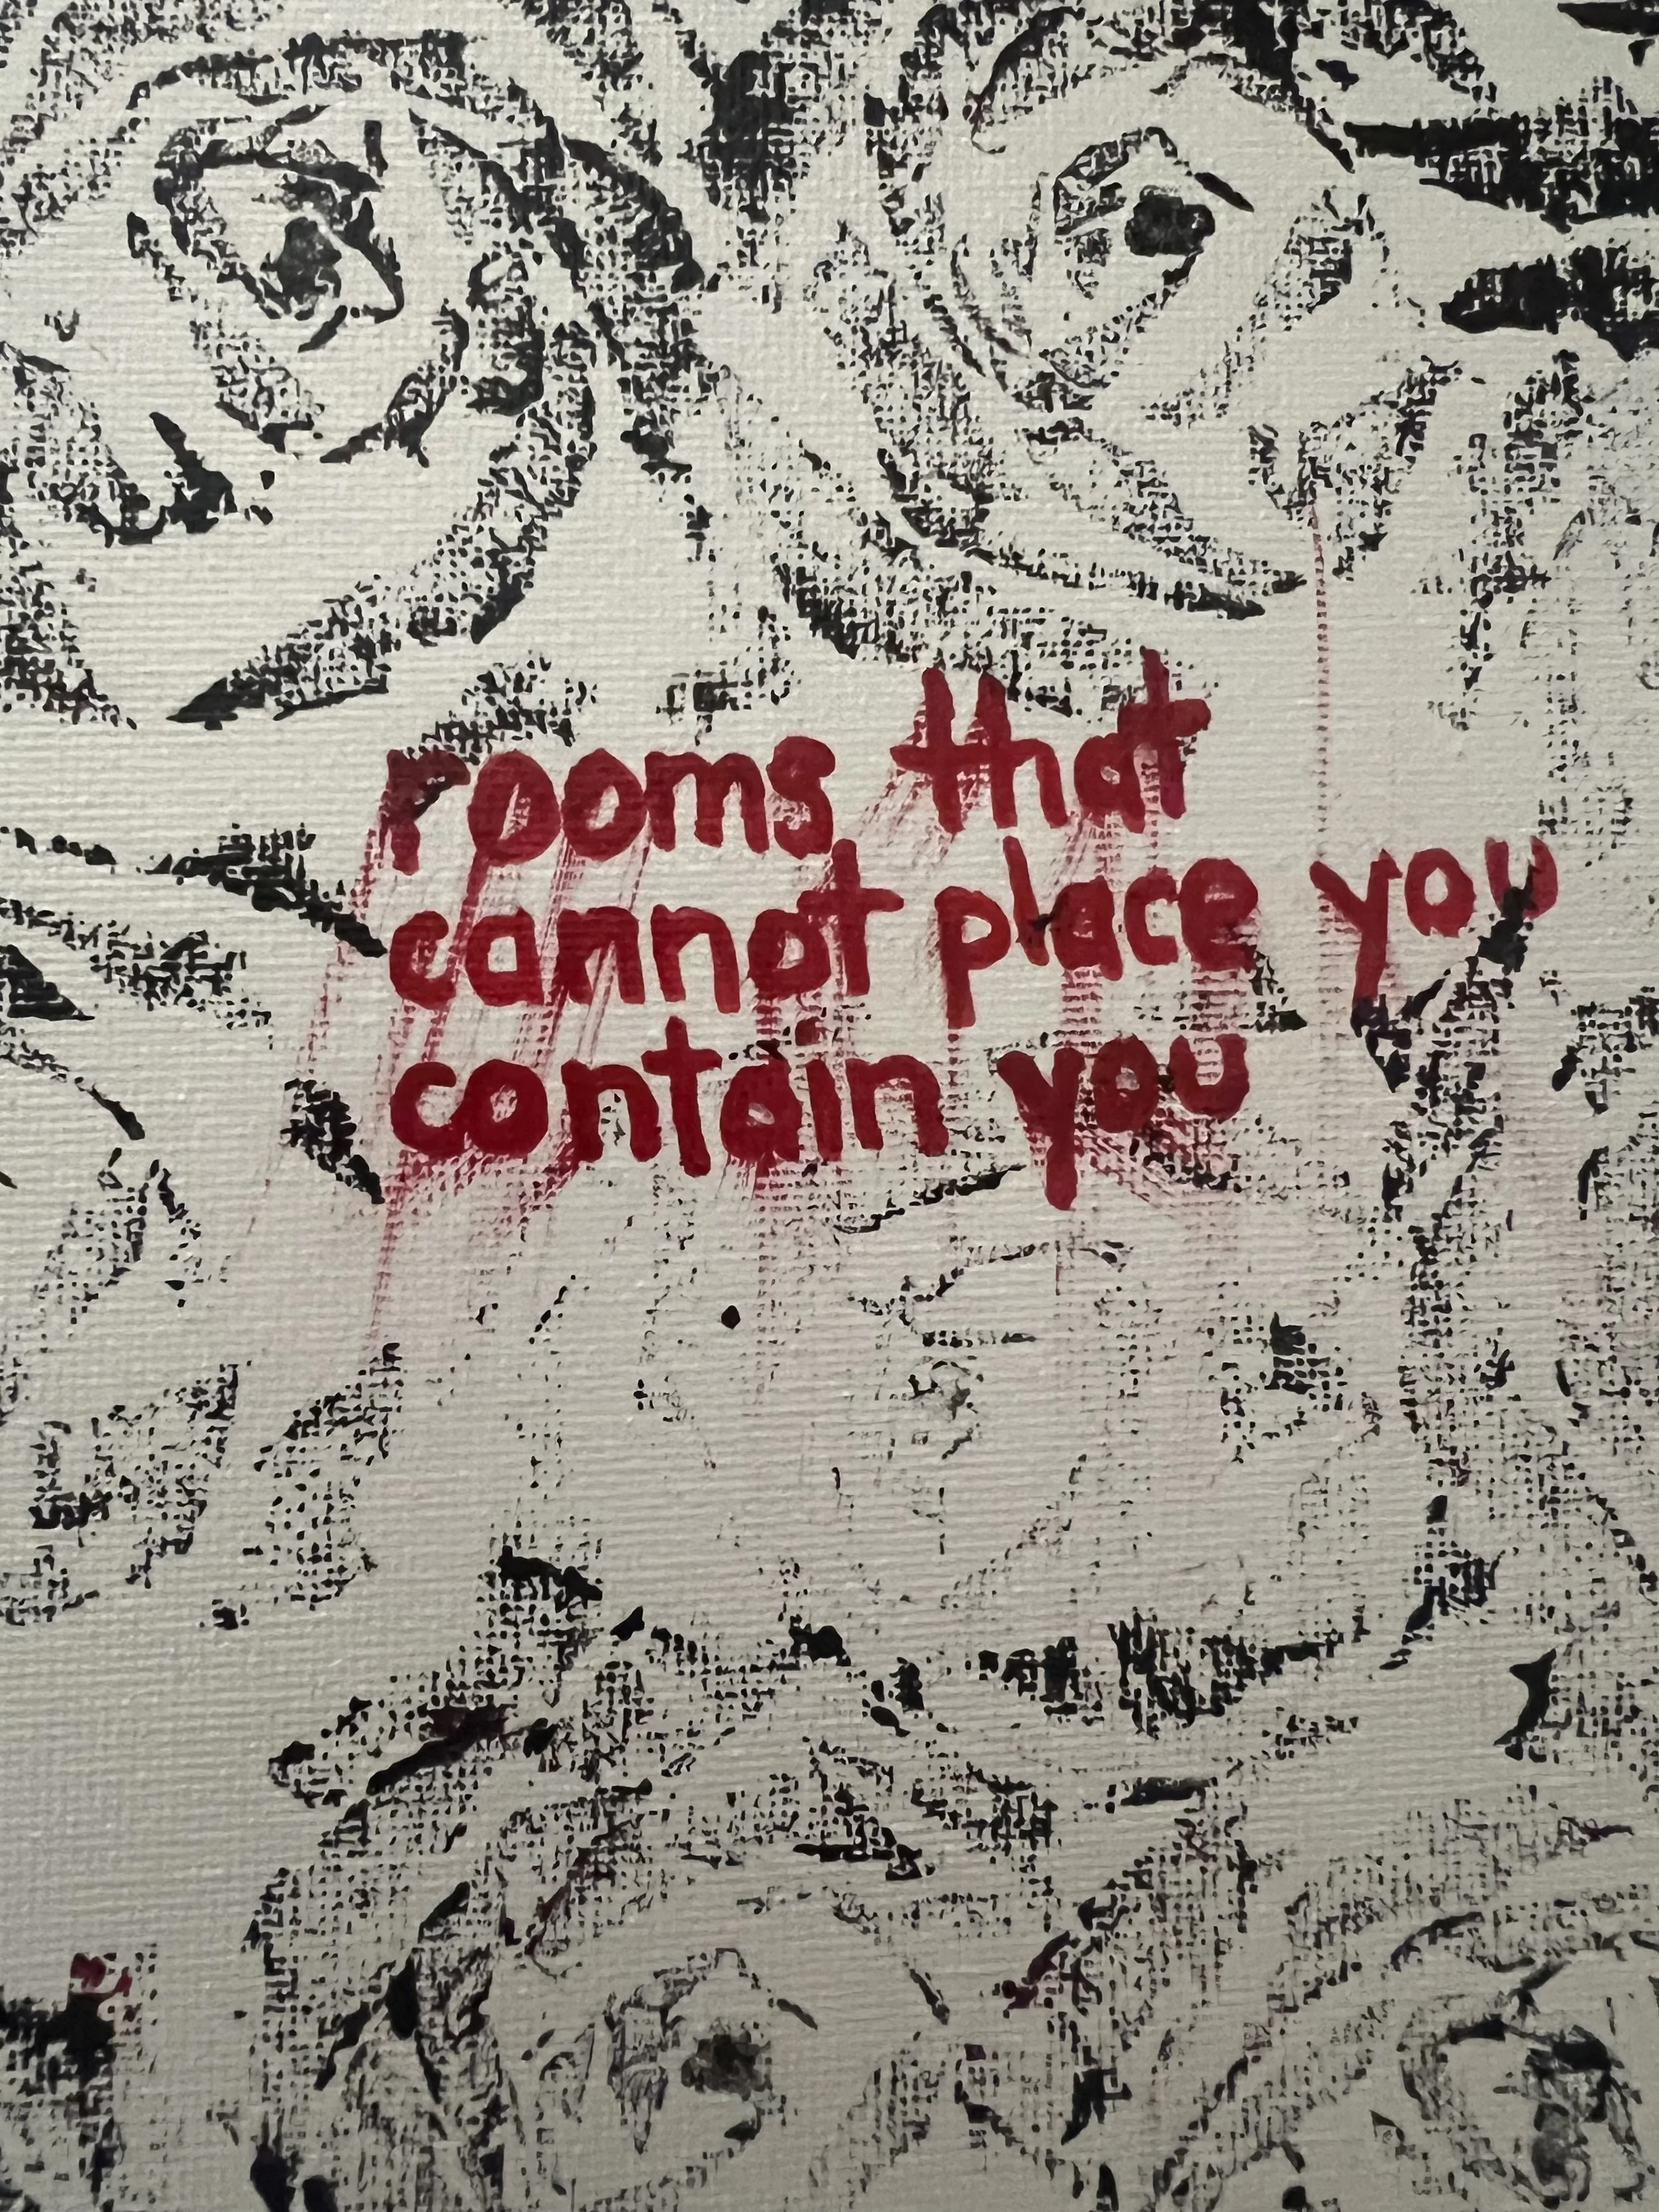 rooms that
cannot place you
contain you